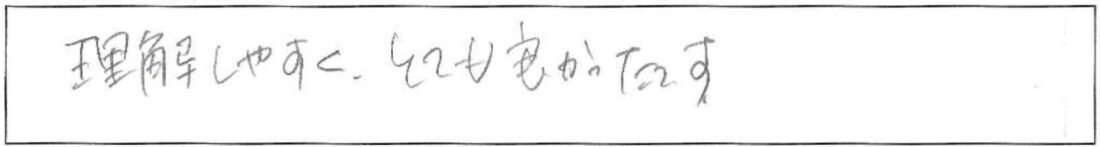 理解しやすく、とても良かったです